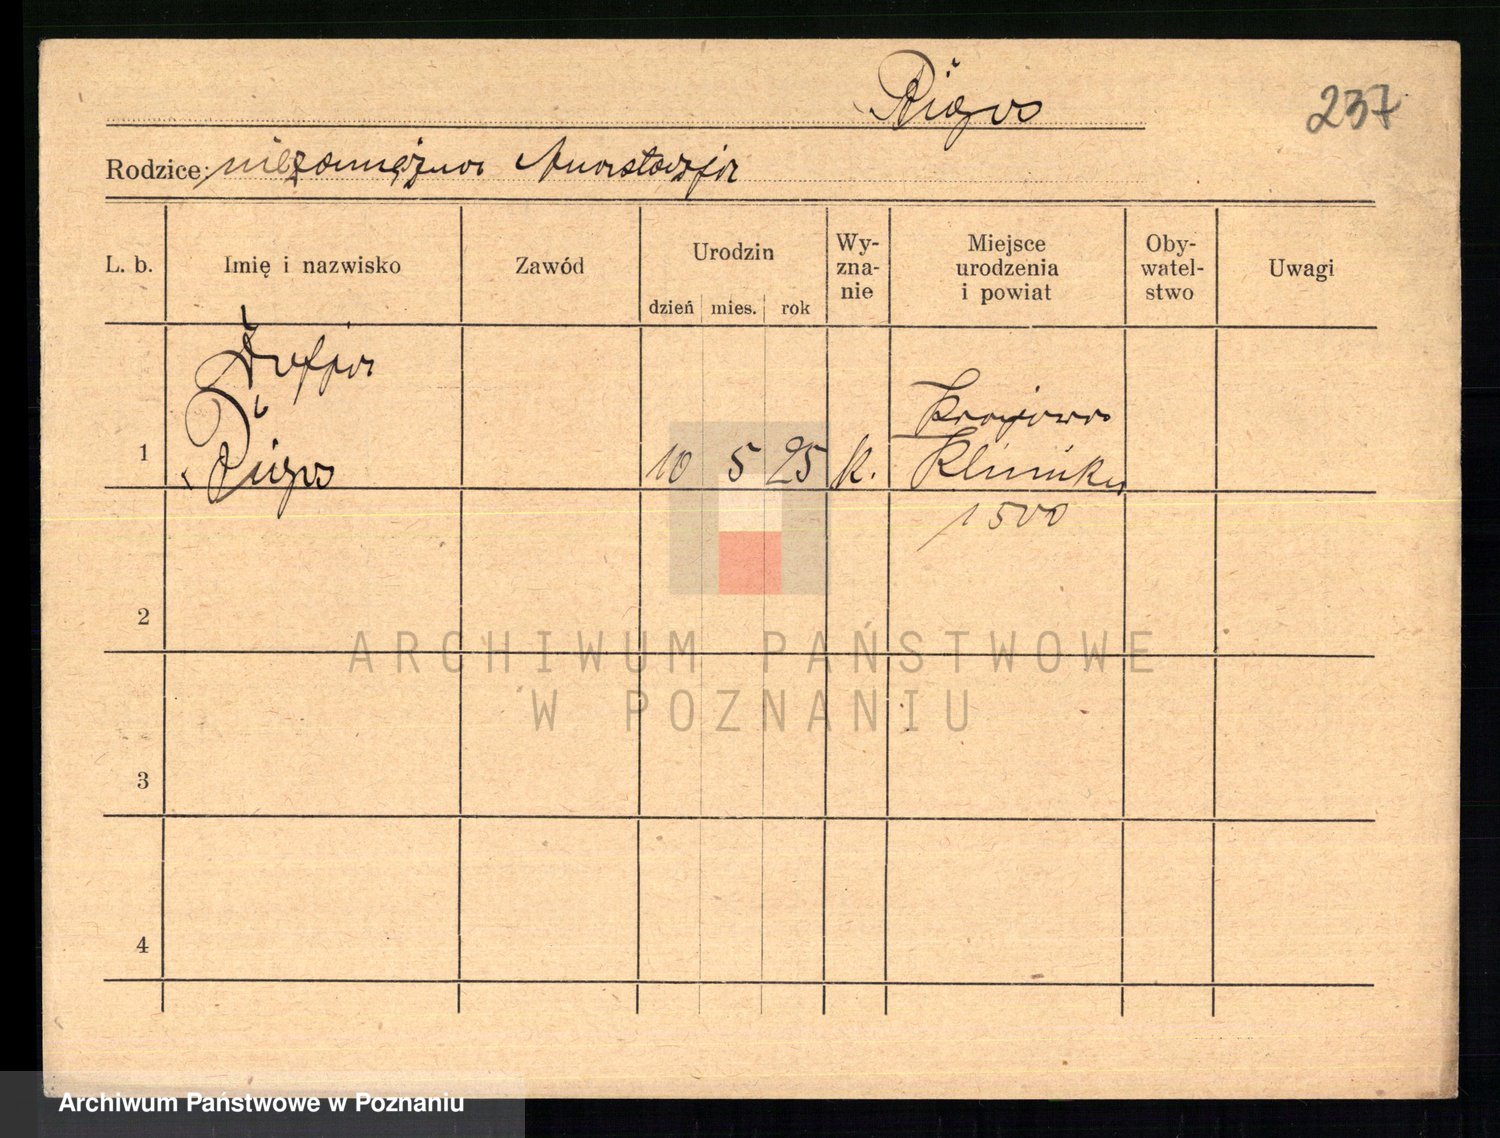 237
Rodzice: niezamężna Anastazja
L. b.
Imię i nazwisko
Zawód
Urodzin
dzień mies. rok
Wy-
zna-
nie
Miejsce
urodzenia
i powiat
Oby-
watel-
stwo
Uwagi
1
10 5 25 k.
Krajowa
Klinika
1500
2
3
4
ARCHIWUM PAŃSTWOWE
W POZNANIU
Archiwum Państwowe w Poznaniu